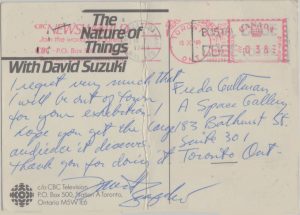 The
Nature of
Things
With David Suzuki
CBC
NEWS
Join the
P.O. Box
POSTAGE
0368
I regret very much that
I will be out of town
for your exhibition. I
hope you get the large
audience it deserves.
Thank you for doing it
David
Freda Guttman
A Space Gallery
183 Bathurst St.
Suite 301
Toronto Ont.
c/o CBC Television
P.O. Box 500, Station A Toronto,
Ontario M5W 1E6